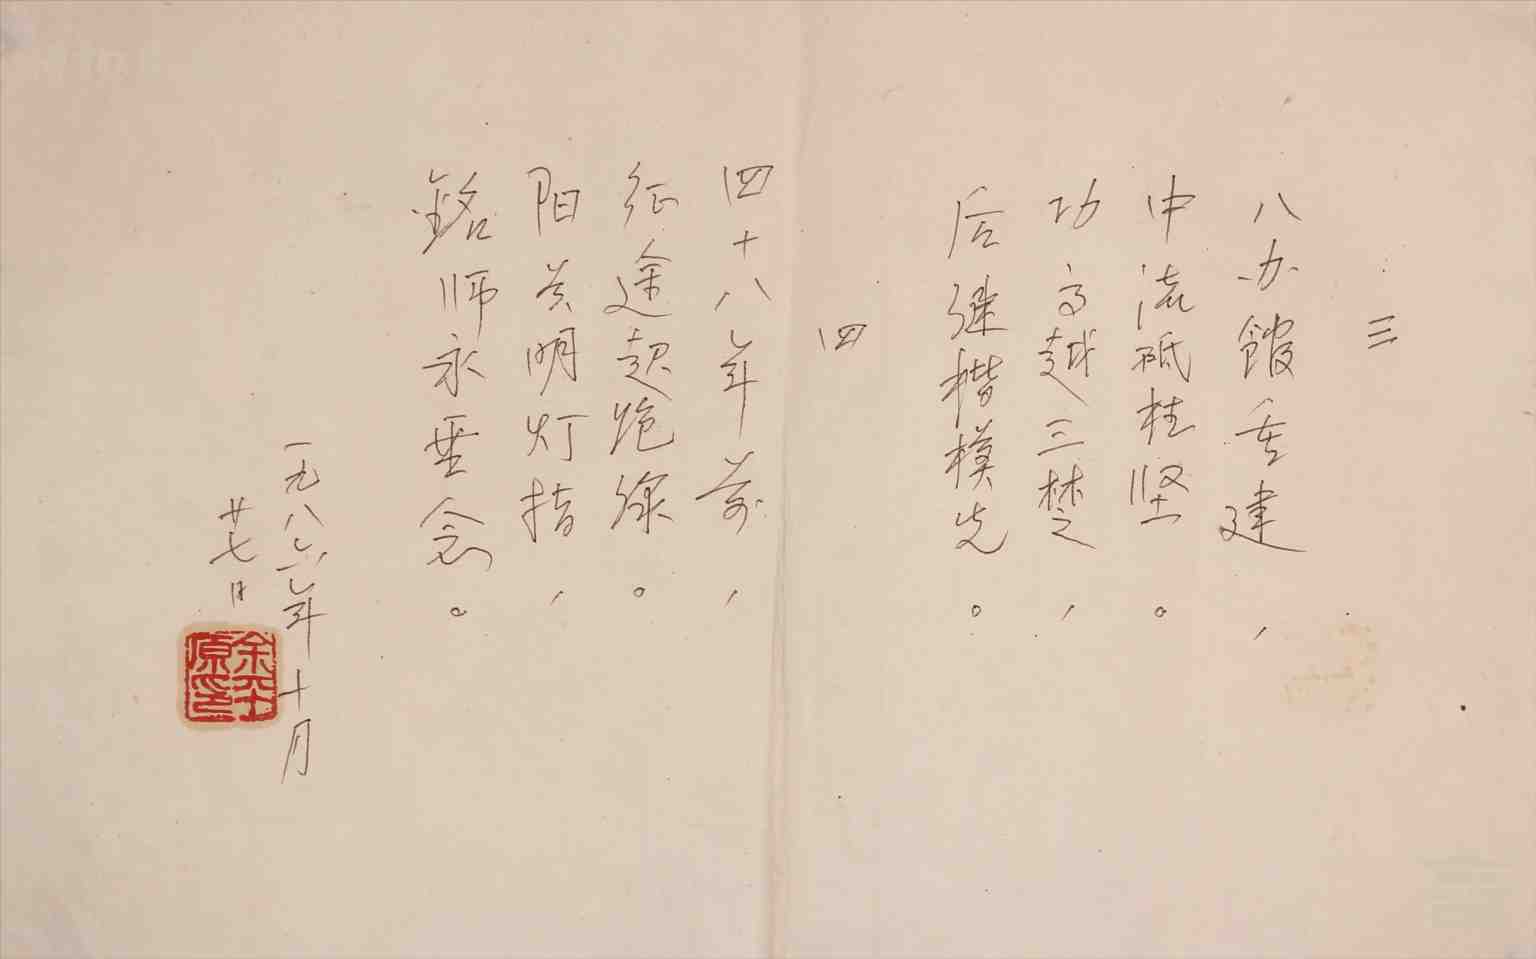 三
八办馆重建，
中流砥柱坚。
功高越三楚，
后继楷模先。
四
四十八年前，
征途起跑线。
阳关明灯指，
銘师永垂念。
一九八六年十月
廿七日